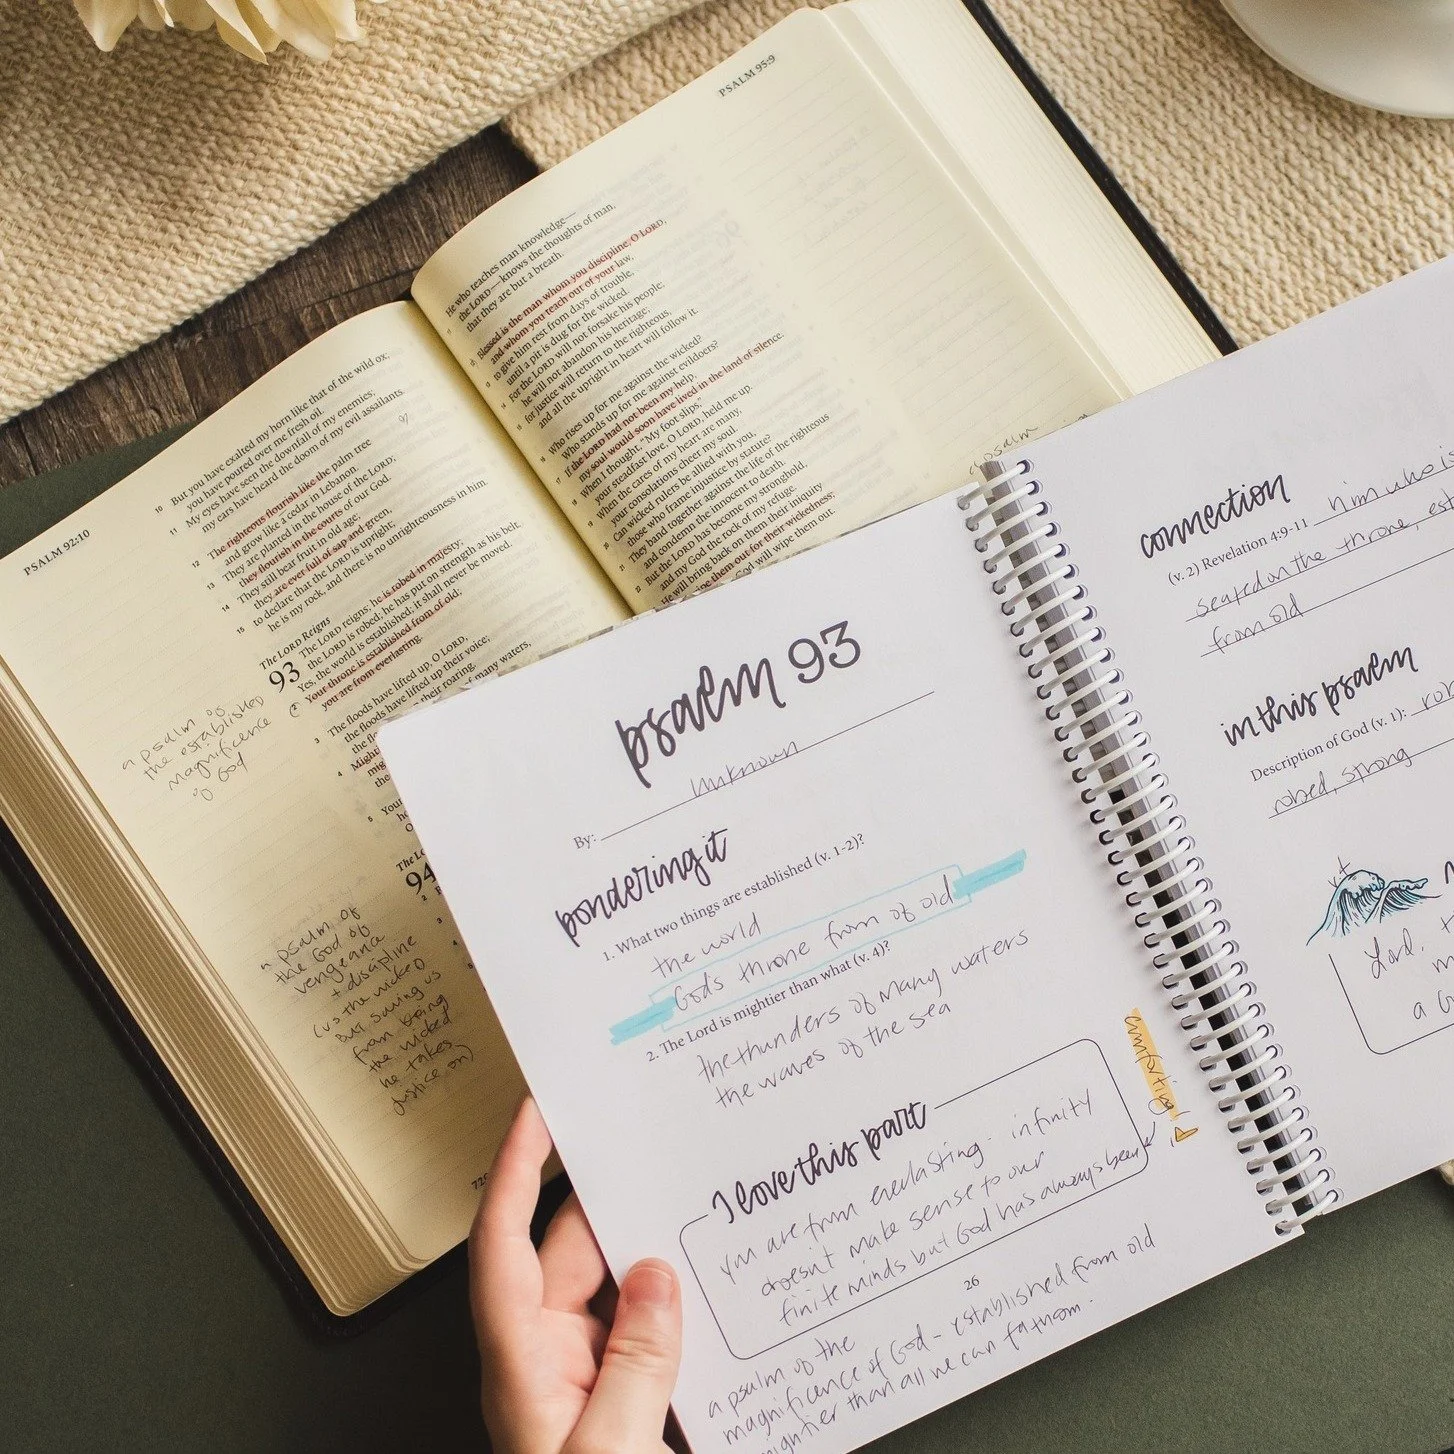 PSALM 92:10
10 But you have exalted my horn like that of the wild ox;
you have poured over me fresh oil.
11 My eyes have seen the downfall of my enemies;
my ears have heard the doom of my evil assailants.
12 The righteous flourish like the palm tree
and grow like a cedar in Lebanon.
13 They are planted in the house of the LORD;
they flourish in the courts of our God.
14 They still bear fruit in old age;
they are ever full of sap and green,
15 to declare that the LORD is upright;
he is my rock, and there is no unrighteousness in him.
The LORD Reigns
93 The LORD reigns; he is robed in majesty;
the LORD is robed; he has put on strength as his belt.
Yes, the world is established; it shall never be moved.
2 Your throne is established from of old;
you are from everlasting.
3 The floods have lifted up, O LORD,
the floods have lifted up their voice;
their roaring.
4 of many waters,
5 Your
94
a psalm of
the established
magnificence
of God
a psalm of
the God of
vengeance
+ discipline
(vs the wicked
but saving us
from being
the wicked
he takes
justice on)
PSALM 95:9
He who teaches man knowledge—
11 the LORD—knows the thoughts of man,
that they are but a breath.
12 Blessed is the man whom you discipline, O LORD,
and whom you teach out of your law,
13 to give him rest from days of trouble,
until a pit is dug for the wicked.
14 For the LORD will not forsake his people;
he will not abandon his heritage;
15 for justice will return to the righteous,
and all the upright in heart will follow it.
16 Who rises up for me against the wicked?
Who stands up for me against evildoers?
17 If the LORD had not been my help,
my soul would soon have lived in the land of silence.
18 When I thought, "My foot slips,"
your steadfast love, O LORD, held me up.
19 When the cares of my heart are many,
your consolations cheer my soul.
20 Can wicked rulers be allied with you,
those who frame injustice by statute?
21 They band together against the life of the righteous
and condemn the innocent to death.
22 But the LORD has become my stronghold,
and my God the rock of my refuge.
23 He will bring back on them their iniquity
them out for their wickedness;
God will wipe them out.
psalm
psalm 93
By: Unknown
pondering it
1. What two things are established (v. 1-2)?
the world
Gods throne from of old
2. The Lord is mightier than what (v. 4)?
the thunders of many waters
the waves of the sea
I love this part
you are from everlasting - infinity
doesn't make sense to our
finite minds but God has always been
comforting!
26
a psalm of the
magnificence of God - established from old
mightier than all we can fathom.
connection
(v. 2) Revelation 4:9-11 him who is
seated on the throne, es
from old
in this psalm
Description of God (v. 1): rob
robed, strong
v4
Lord, t
m
a G